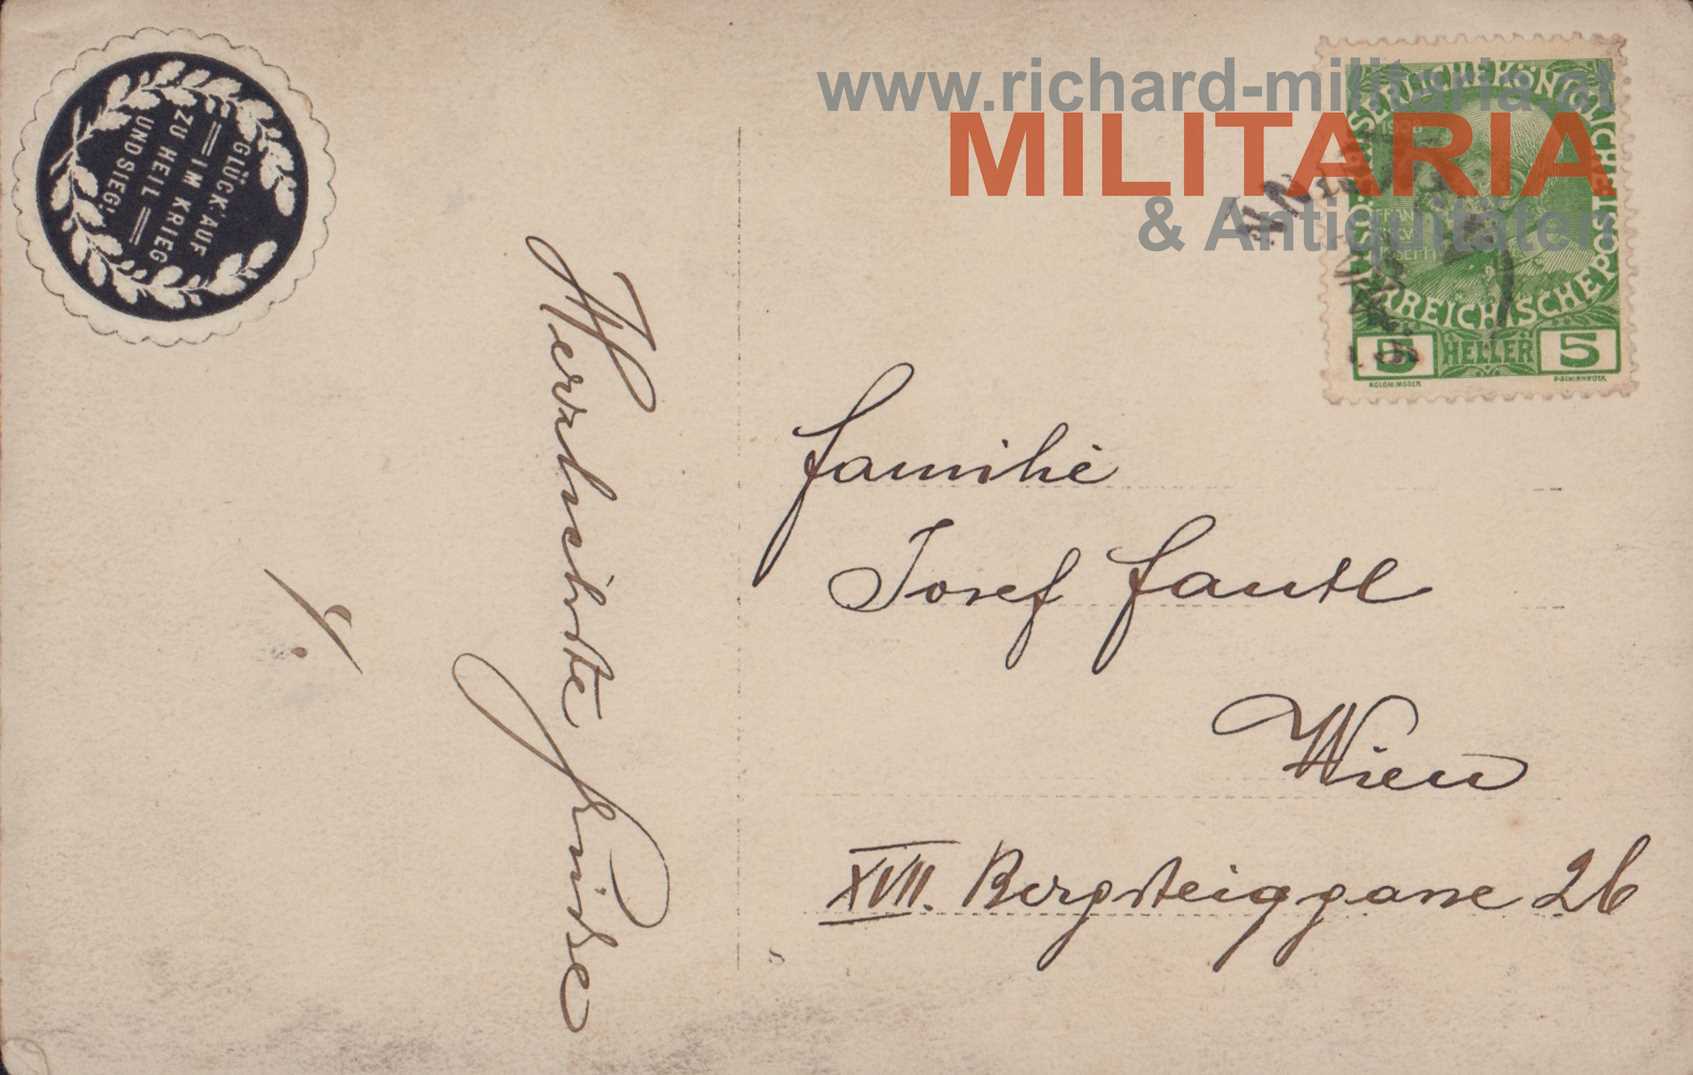 GLÜCK' AUF
IM KRIEG
ZU HEIL
UND SIEG!
Herzlichste Grüsse
www.richard-militaria.at
MILITARIA
& Antiquitäten
KAISERLICHEKÖNIGLICHE
ÖSTERREICHISCHEPOST
1908
5 HELLER 5
KOLOM.MOSER
F.SCHIRNBÖCK
Familie
Josef Fautl
Wien
XVII. Bergsteiggasse 26